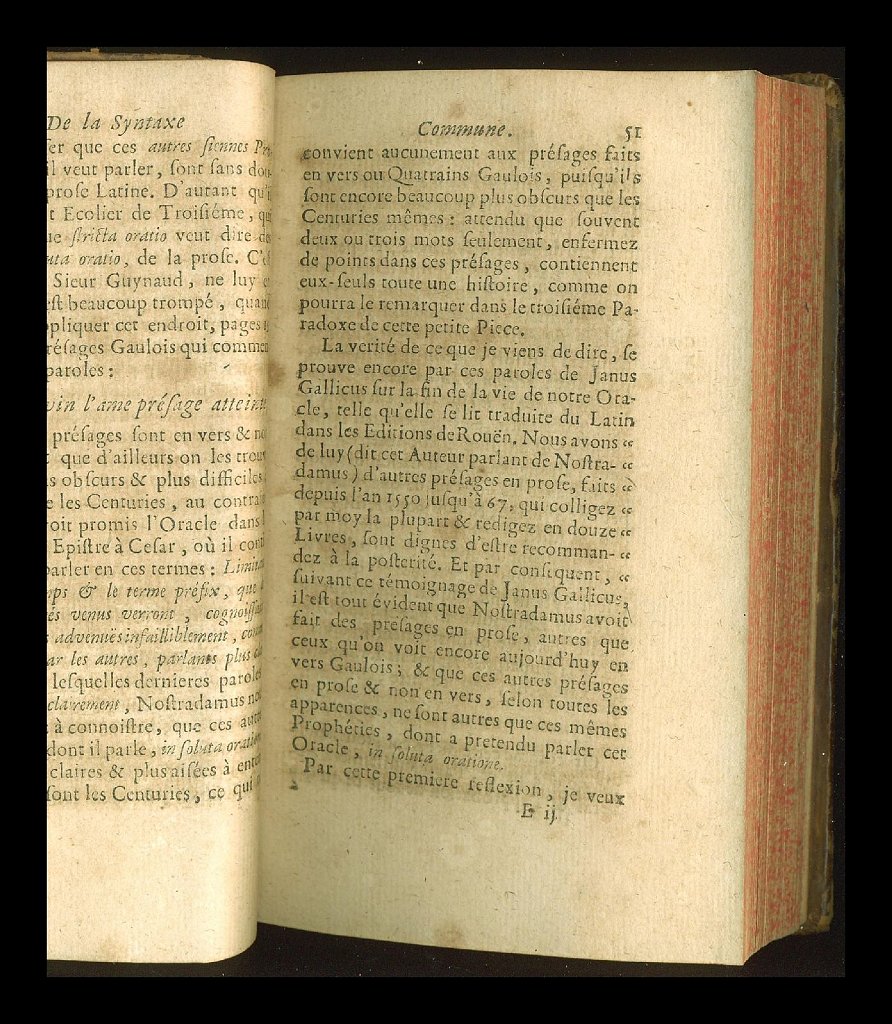 De la Syntaxe
ſer que ces autres ſiennes
il veut parler, ſont ſans
proſe Latine. D'autant
t Ecolier de Troiſiéme,
ue ſtricta oratio veut dire
uta oratio, de la proſe.
Sieur Guynaud, ne luy
eſt beaucoup trompé,
pliquer cet endroit, pages
réſages Gaulois qui
paroles :
vin l'ame préſage
préſages ſont en vers &
que d'ailleurs on les
s obſcurs & plus difficiles
e les Centuries, au
oit promis l'Oracle dans
Epiſtre à Ceſar, où il
parler en ces termes :
mps & le terme préfix, que
és venus verront,
advenuës infailliblement,
ar les autres, parlants plus
leſquelles dernieres
clairement, Noſtradamus
à connoiſtre, que ces
dont il parle, in ſoluta
claires & plus aiſées à
ſont les Centuries, ce
Commune. 51
convient aucunement aux préſages faits
en vers ou Quatrains Gaulois, puiſqu'ils
ſont encore beaucoup plus obſcurs que les
Centuries mêmes : attendu que ſouvent
deux ou trois mots ſeulement, enfermez
de points dans ces préſages, contiennent
eux-ſeuls toute une hiſtoire, comme on
pourra le remarquer dans le troiſiéme Pa-
radoxe de cette petite Piece.
La verité de ce que je viens de dire, ſe
prouve encore par ces paroles de Janus
Gallicus ſur la fin de la vie de notre Ora-
cle, telle qu'elle ſe lit traduite du Latin
dans les Editions de Rouën. Nous avons “
de luy (dit cet Auteur parlant de Noſtra- “
damus) d'autres préſages en proſe, faits “
depuis l'an 1550 juſqu'à 67, qui colligez “
par moy la plupart & redigez en douze “
Livres, ſont dignes d'eſtre recomman- “
dez à la poſterité. Et par conſequent, “
ſuivant ce témoignage de Janus Gallicus,
il eſt tout évident que Noſtradamus avoit
fait des préſages en proſe, autres que
ceux qu'on voit encore aujourd'huy en
vers Gaulois ; & que ces autres préſages
en proſe & non en vers, ſelon toutes les
apparences, ne ſont autres que ces mêmes
Prophéties, dont a pretendu parler cet
Oracle, in ſoluta oratione.
Par cette premiere reflexion, je veux
E ij